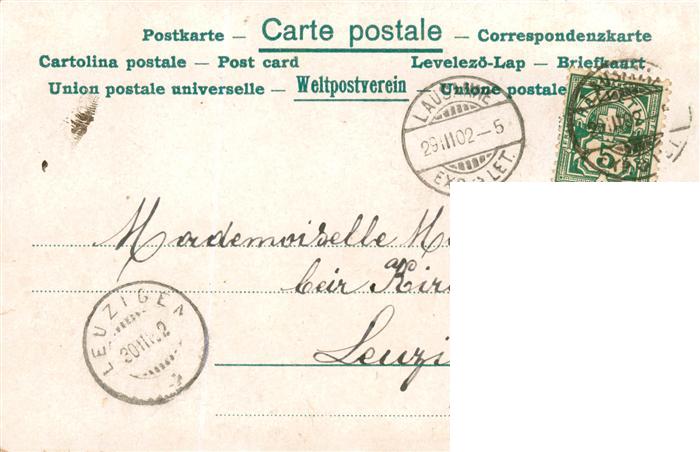 Postkarte — Carte postale — Correspondenzkarte
Cartolina postale — Post card Levelező-Lap — Briefkaart
Union postale universelle — Weltpostverein — Unione postale
LAUSANNE
29.III.02–5
EXP. LET.
5
Mademoiselle
beir
LEUZIGEN
30.III.02